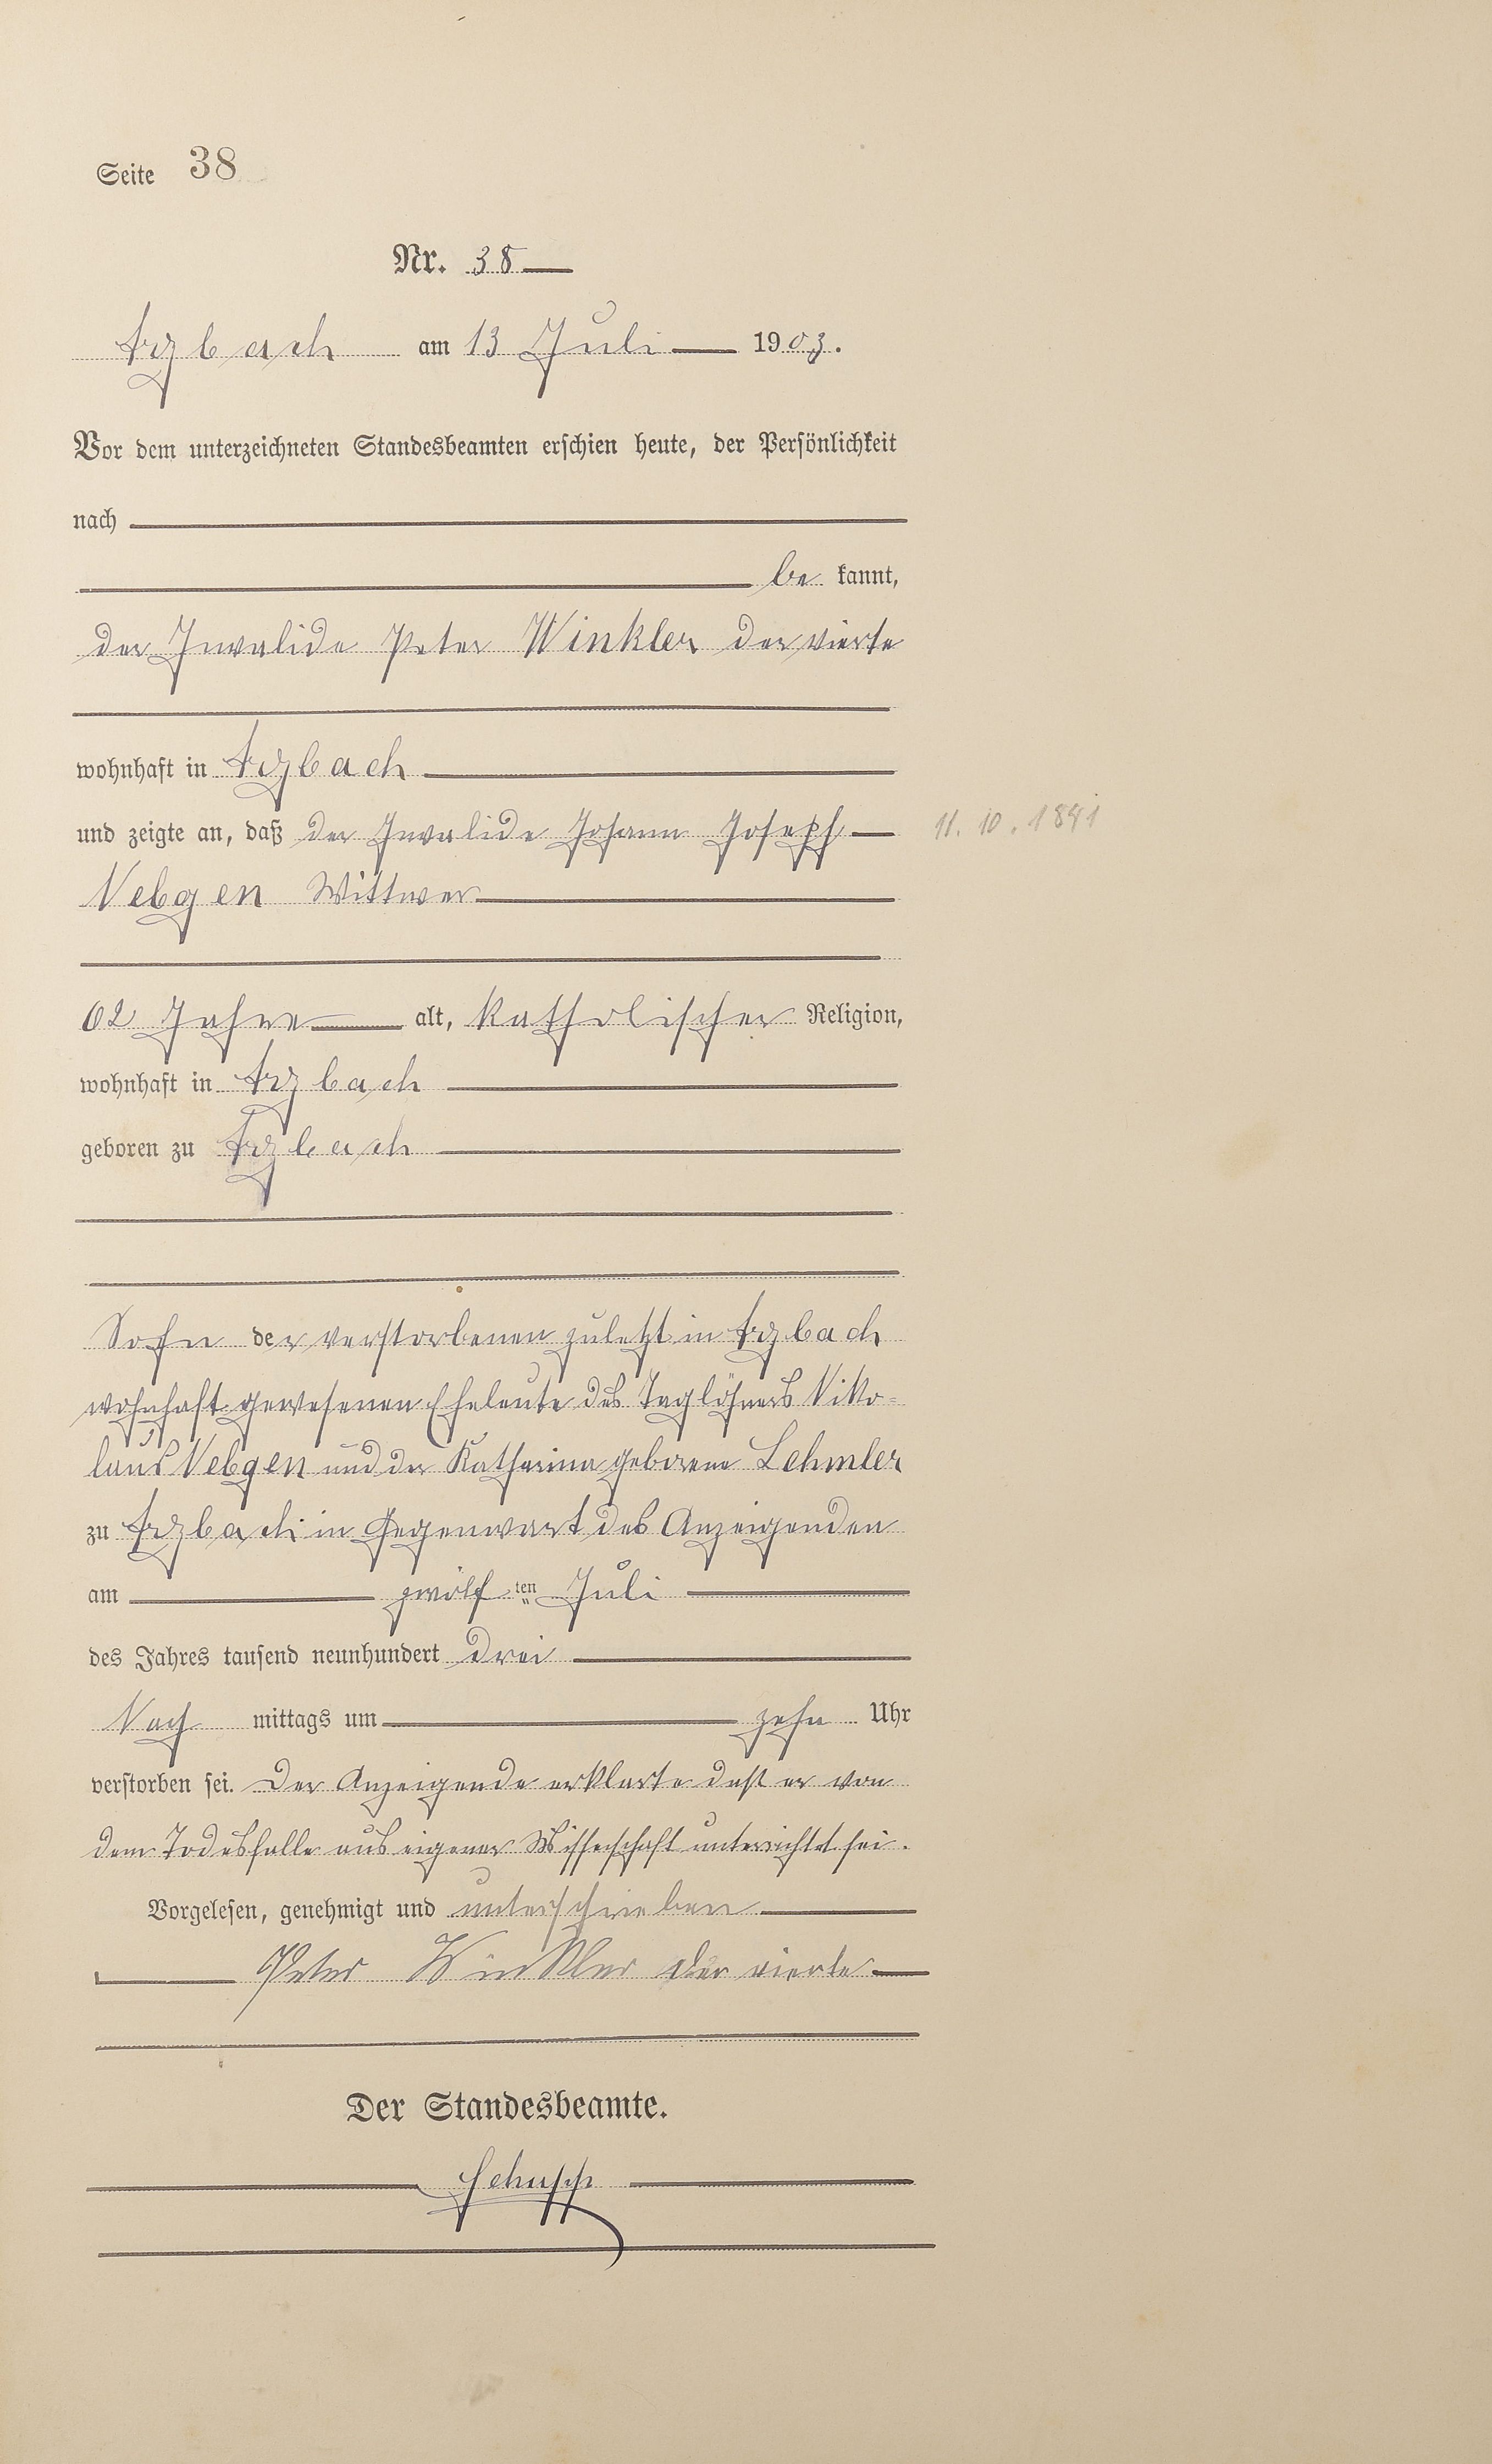 Seite 38
Nr. 38
Arzbach am 13 Juli 1903.
Vor dem unterzeichneten Standesbeamten erschien heute, der Persönlichkeit
nach
be kannt,
der Invalide Peter Winkler der vierte
wohnhaft in Arzbach
und zeigte an, daß der Invalide Johann Joseph 11. 10. 1841
Nebgen Wittwer
62 Jahre alt, katholischer Religion,
wohnhaft in Arzbach
geboren zu Arzbach
Sohn der verstorbenen zuletzt in Arzbach
wohnhaft gewesenen Eheleute des Taglöhners Niko-
laus Nebgen und der Katharina geborene Lehmler
zu Arzbach in Gegenwart des Anzeigenden
am zwölf ten Juli
des Jahres tausend neunhundert drei
Nach mittags um zehn Uhr
verstorben sei. Der Anzeigende erklarte daß er von
dem Todesfalle aus eigener Wissenschaft unterrichtet sei.
Vorgelesen, genehmigt und unterschrieben
Peter Winkler der vierte
Der Standesbeamte.
Schupp